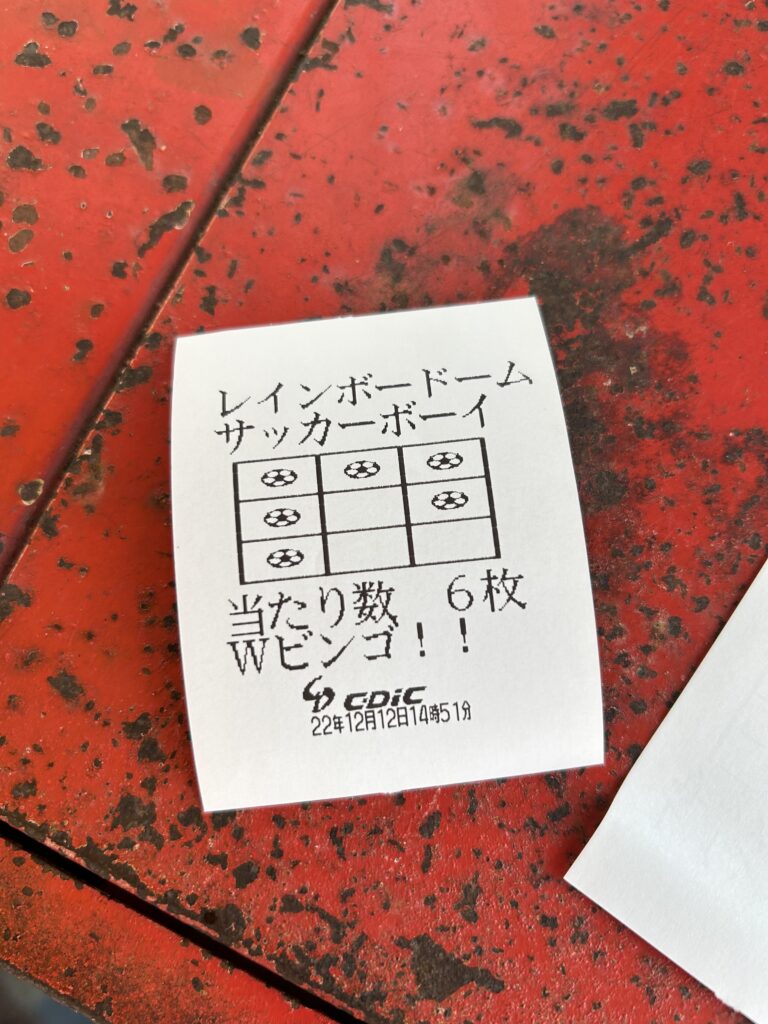 レインボードーム
サッカーボーイ
当たり数　6枚
Wビンゴ！！
C-DiC
22年12月12日14時51分